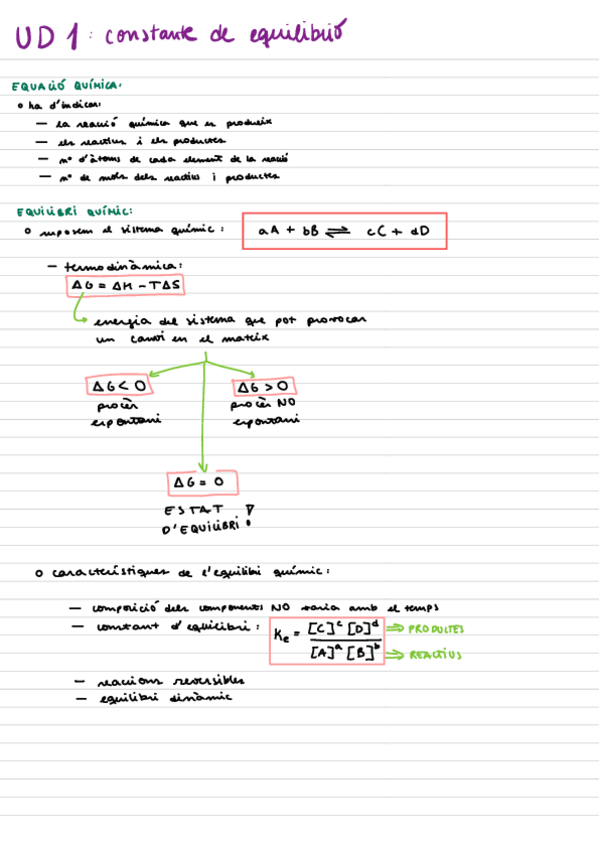 UD 1: constante de equilibrio
EQUACIÓ QUÍMICA:
o ha d'indicar:
— la reacció química que es produeix
— els reactius i els productes
— nº d'àtoms de cada element de la reacció
— nº de mols dels reactius i productes
EQUILIBRI QUÍMIC:
o suposem el sistema químic: aA + bB ⇌ cC + dD
— termodinàmica:
ΔG = ΔH - TΔS
energia del sistema que pot provocar
un canvi en el mateix
ΔG < 0 ΔG > 0
procés procés NO
espontani espontani
ΔG = 0
ESTAT
D'EQUILIBRI !
o característiques de l'equilibri químic:
— composició dels components NO varia amb el temps
— constant d'equilibri: Ke = [C]^c [D]^d / [A]^a [B]^b ⇒ PRODUCTES
⇒ REACTIUS
— reaccions reversibles
— equilibri dinàmic